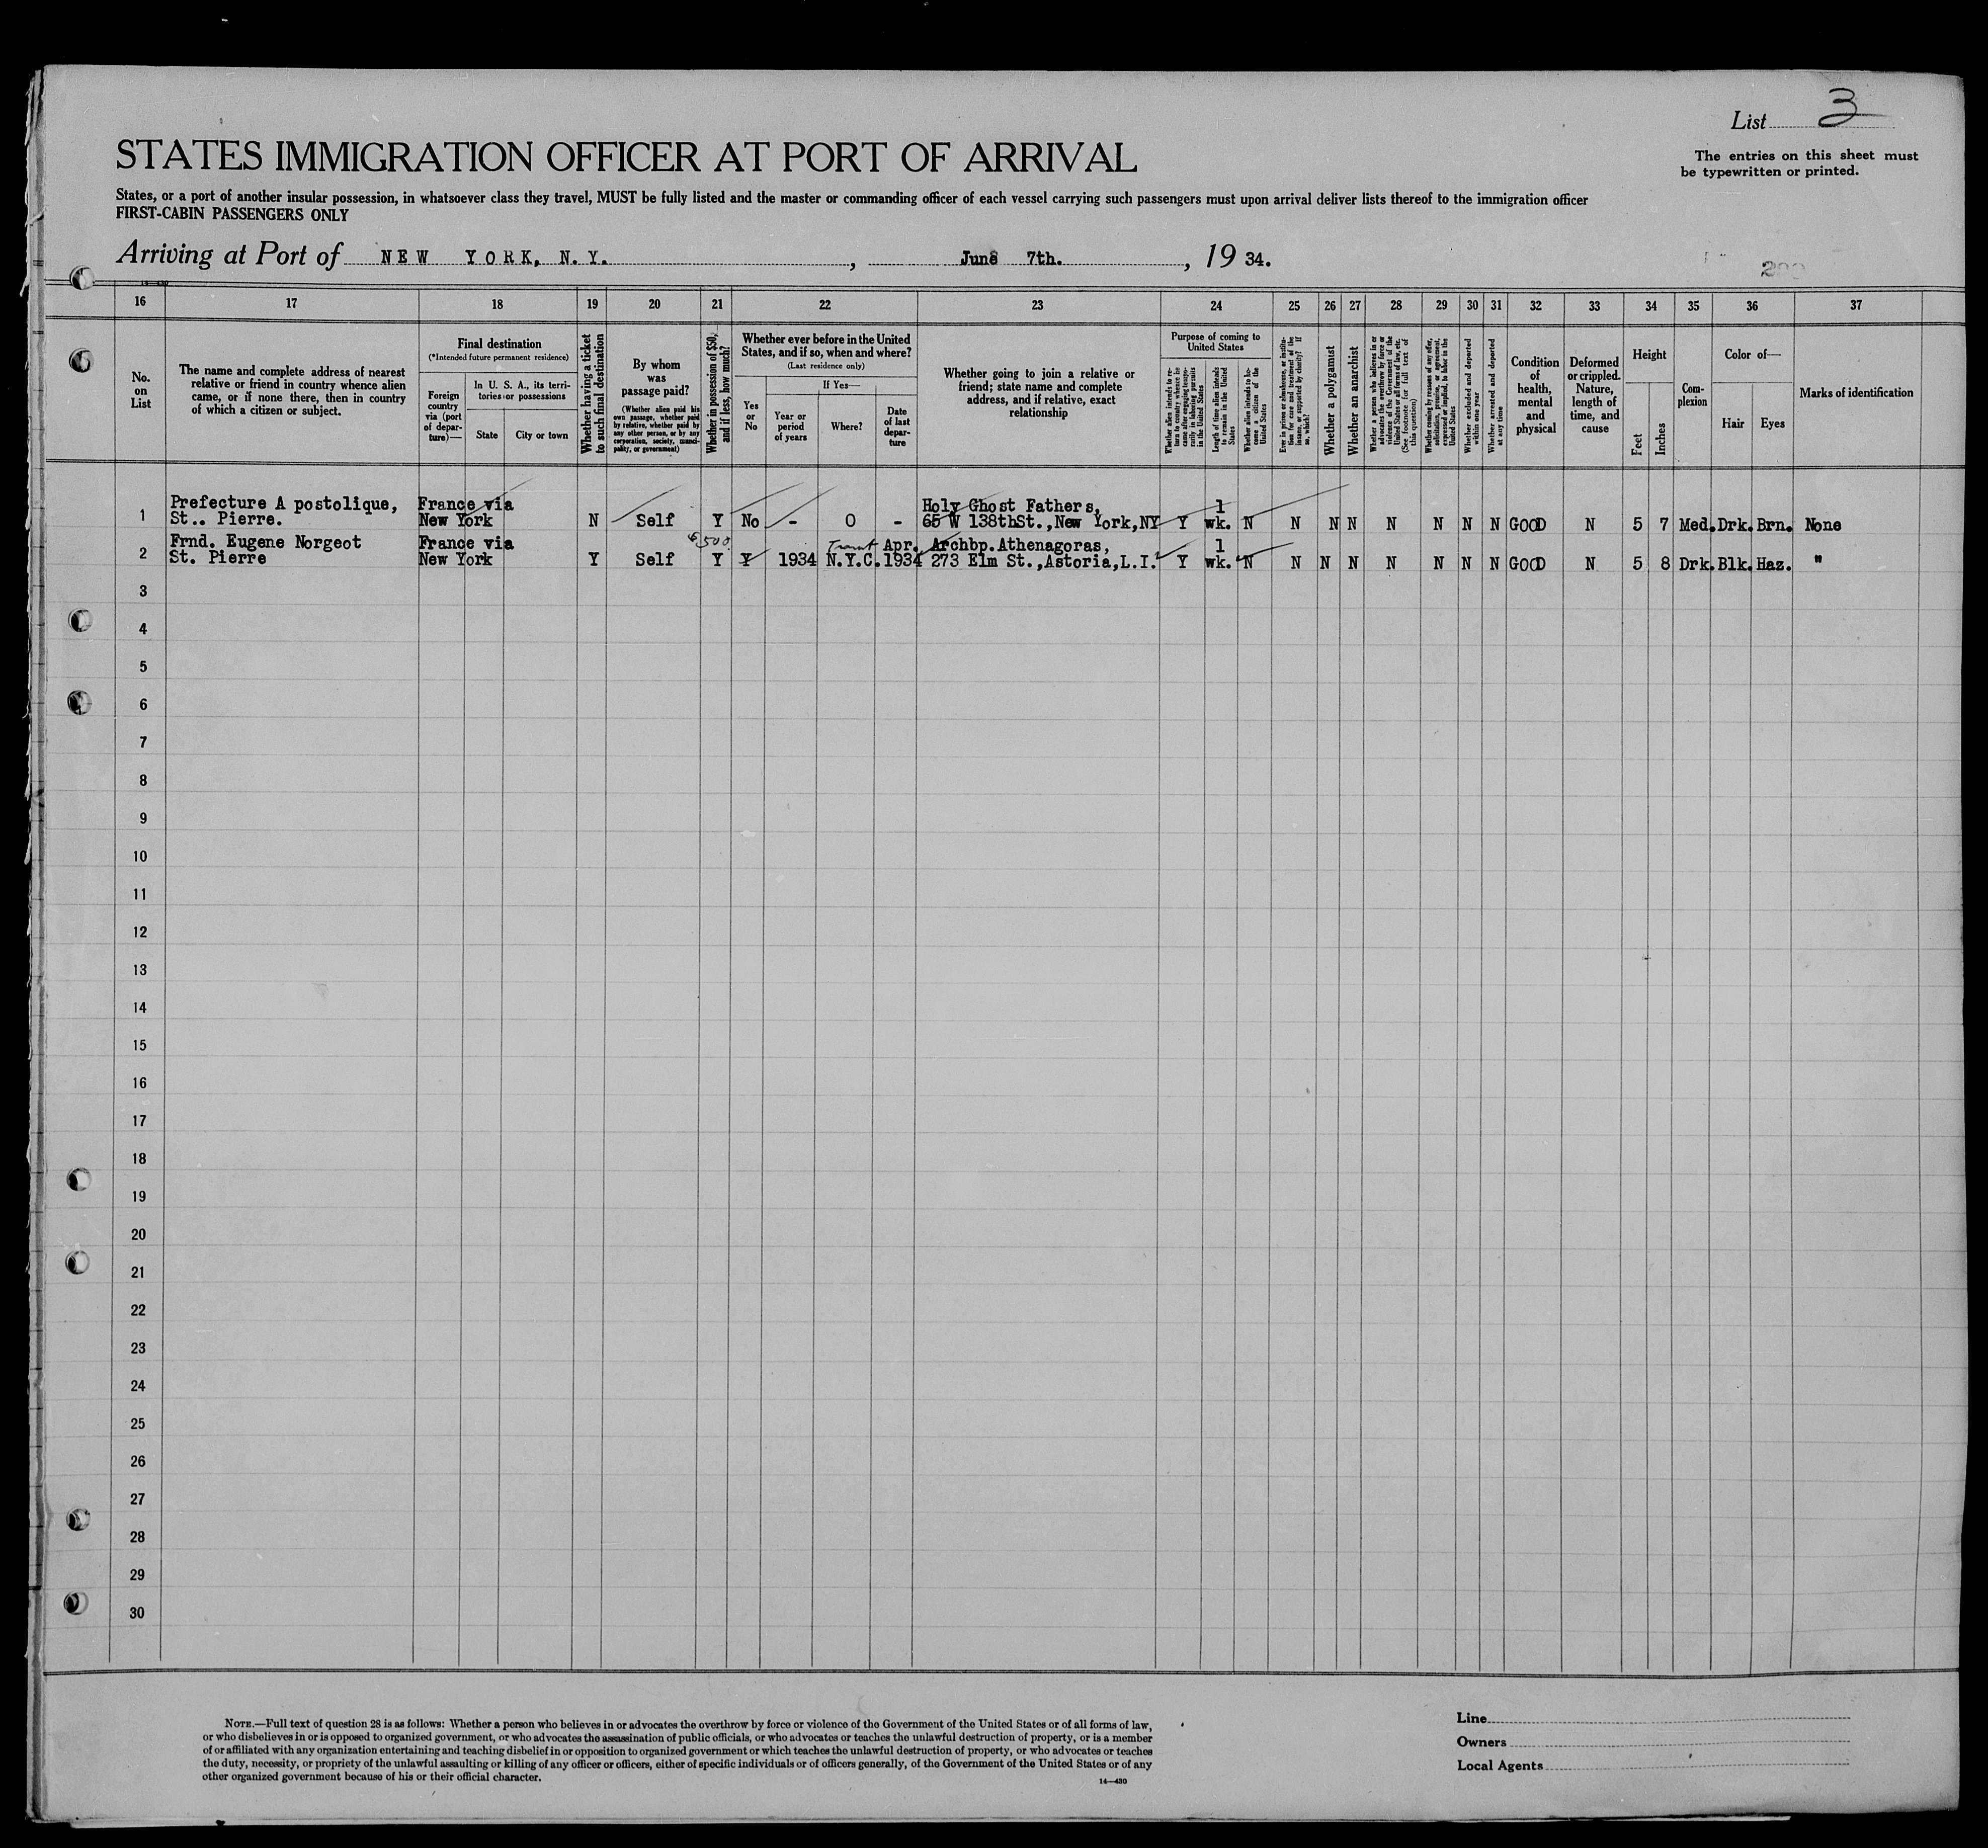 List 3
The entries on this sheet must
be typewritten or printed.
STATES IMMIGRATION OFFICER AT PORT OF ARRIVAL
States, or a port of another insular possession, in whatsoever class they travel, MUST be fully listed and the master or commanding officer of each vessel carrying such passengers must upon arrival deliver lists thereof to the immigration officer
FIRST-CABIN PASSENGERS ONLY
Arriving at Port of NEW YORK, N.Y., June 7th., 1934.
16 17 18 19 20 21 22 23 24 25 26 27 28 29 30 31 32 33 34 35 36 37
No.
on
List
The name and complete address of nearest
relative or friend in country whence alien
came, or if none there, then in country
of which a citizen or subject.
Final destination
(*Intended future permanent residence)
Foreign
country
via (port
of depar-
ture)—
In U. S. A., its terri-
tories or possessions
State
City or town
Whether having a ticket
to such final destination
By whom
was
passage paid?
(Whether alien paid his
own passage, whether paid
by relative, whether paid by
any other person, or by any
corporation, society, munici-
pality, or government)
Whether in possession of $50,
and if less, how much?
Whether ever before in the United
States, and if so, when and where?
(Last residence only)
Yes
or
No
If Yes—
Year or
period
of years
Where?
Date
of last
depar-
ture
Whether going to join a relative or
friend; state name and complete
address, and if relative, exact
relationship
Purpose of coming to
United States
Whether alien intends to re-
turn to country whence he
came after engaging tempo-
rarily in laboring pursuits
in the United States
Length of time alien intends
to remain in the United
States
Whether alien intends to be-
come a citizen of the
United States
Ever in prison or almshouse, or institu-
tion for care and treatment of the
insane, or supported by charity? If
so, which?
Whether a polygamist
Whether an anarchist
Whether a person who believes in or
advocates the overthrow by force or
violence of the Government of the
United States or all forms of law, etc.
(See footnote for full text of
this question)
Whether coming by reason of any offer,
solicitation, promise, or agreement,
expressed or implied, to labor in the
United States
Whether excluded and deported
within one year
Whether arrested and deported
at any time
Condition
of
health,
mental
and
physical
Deformed
or crippled.
Nature,
length of
time, and
cause
Height
Feet
Inches
Com-
plexion
Color of—
Hair
Eyes
Marks of identification
Prefecture A postolique, France via Holy Ghost Fathers, 1
1 St.. Pierre. New York N Self Y No - O - 65 W 138thSt.,New York,NY Y wk. N N N N N N N N GOOD N 5 7 Med. Drk. Brn. None
Frnd. Eugene Norgeot France via $500 Transit Apr. Archbp.Athenagoras, 1
2 St. Pierre New York Y Self Y Y 1934 N.Y.C. 1934 273 Elm St.,Astoria,L.I. Y wk. N N N N N N N N GOOD N 5 8 Drk. Blk. Haz. "
3
4
5
6
7
8
9
10
11
12
13
14
15
16
17
18
19
20
21
22
23
24
25
26
27
28
29
30
NOTE.—Full text of question 28 is as follows: Whether a person who believes in or advocates the overthrow by force or violence of the Government of the United States or of all forms of law,
or who disbelieves in or is opposed to organized government, or who advocates the assassination of public officials, or who advocates or teaches the unlawful destruction of property, or is a member
of or affiliated with any organization entertaining and teaching disbelief in or opposition to organized government or which teaches the unlawful destruction of property, or who advocates or teaches
the duty, necessity, or propriety of the unlawful assaulting or killing of any officer or officers, either of specific individuals or of officers generally, of the Government of the United States or of any
other organized government because of his or their official character.
14—430
Line
Owners
Local Agents